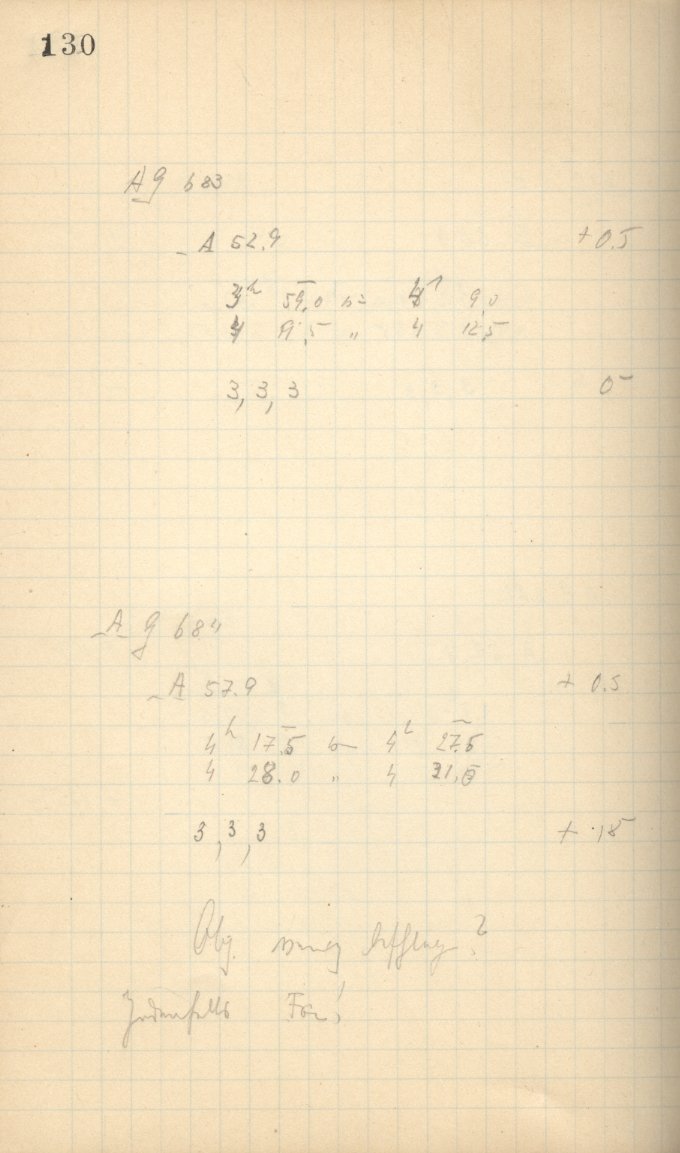 130
A G 683
A 52.9 +0.5
3h 59,0 bis 4h 9,0
4 9,5 „ 4 12,5
3, 3, 3 0
A G 684
A 57.9 + 0.5
4h 17.5 bis 4h 27.5
4 28.0 „ 4 31,0
3, 3, 3 + 15
Obj. wenig
Jedenfalls